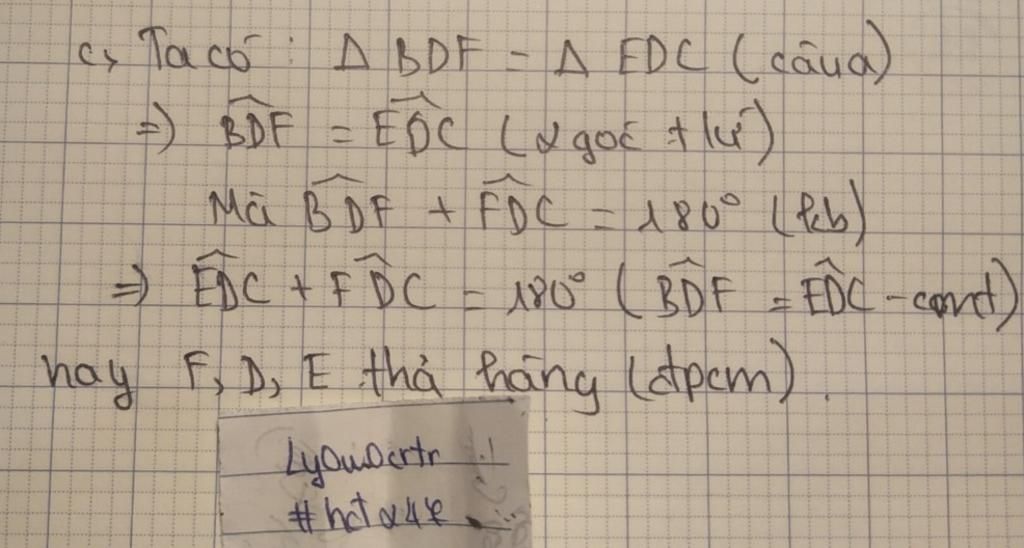 c, Ta có: Δ BDF = Δ EDC (câu a)
=> \widehat{BDF} = \widehat{EDC} (2 góc t/ứ)
Mà \widehat{BDF} + \widehat{FDC} = 180° (kb)
=> \widehat{EDC} + \widehat{FDC} = 180° (\widehat{BDF} = \widehat{EDC} - cmt)
hay F, D, E thẳ hàng (đpcm).
LyOuOcrtr